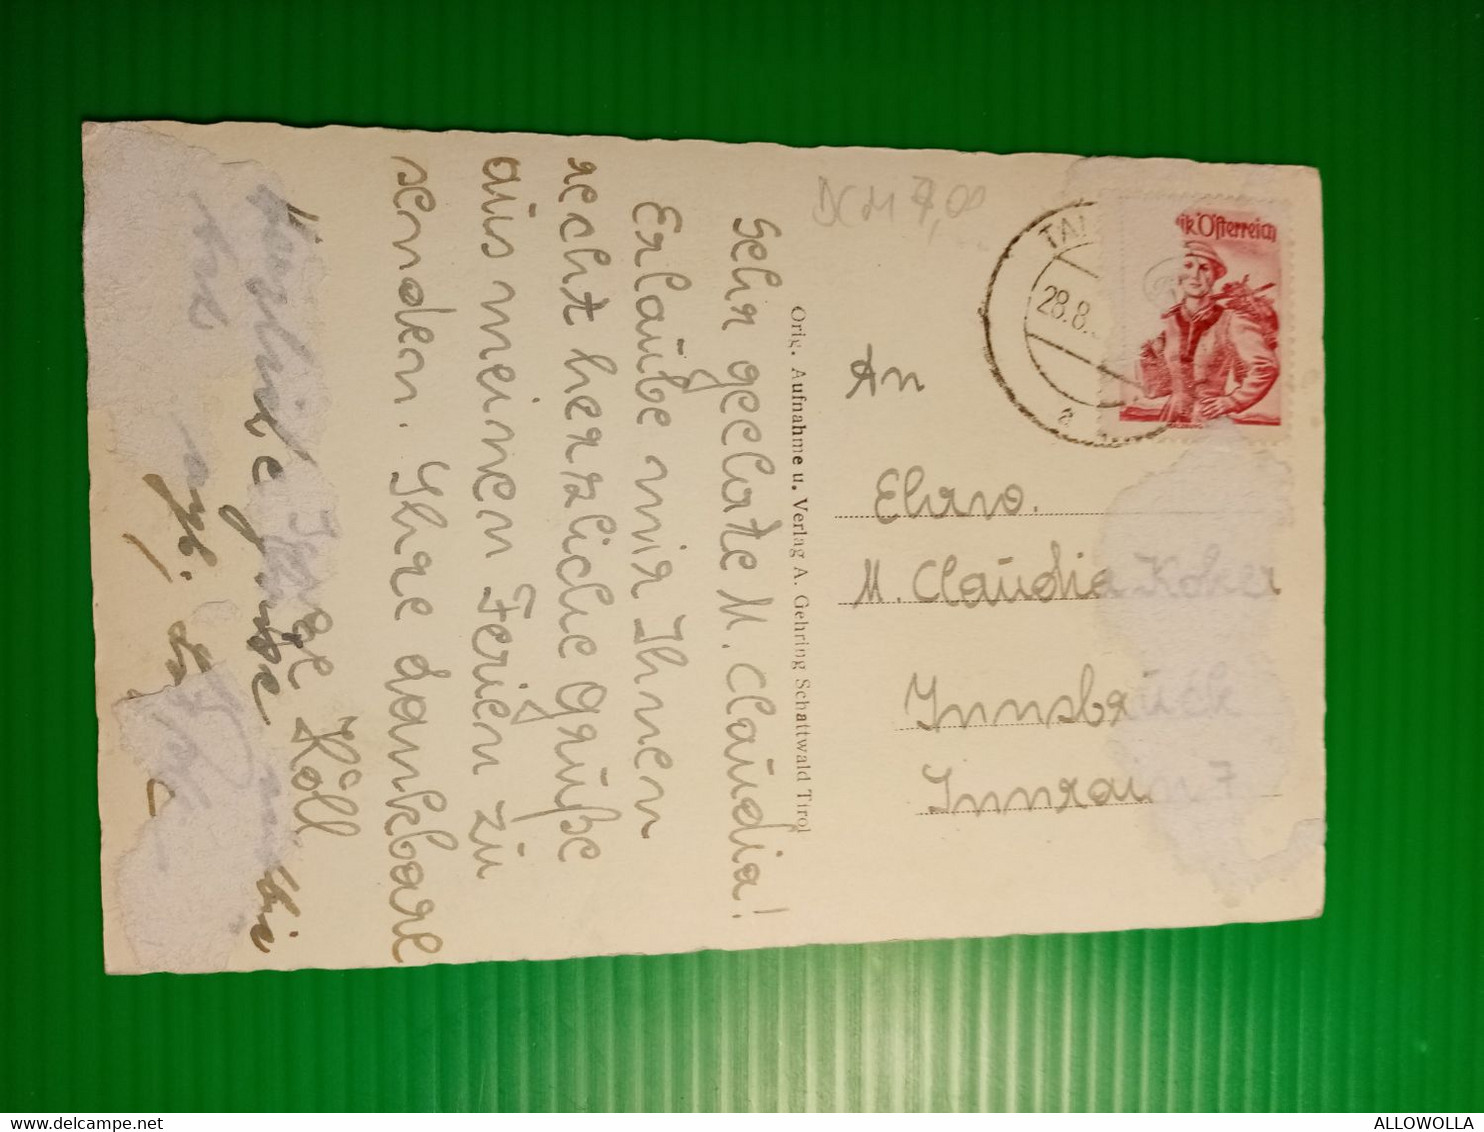 Sehr geehrte M. Claudia!
Erlaube mir Ihnen
recht herzliche Grüße
aus meinen Ferien zu
senden. Ihre dankbare
Höll
DCM 7,00
Orig. Aufnahme u. Verlag A. Gehring Schattwald Tirol
An
Ehrw.
M. Claudia Koker
Innsbruck
Innrain 7
28.8.
a
Österreich
ALLOWOLLA